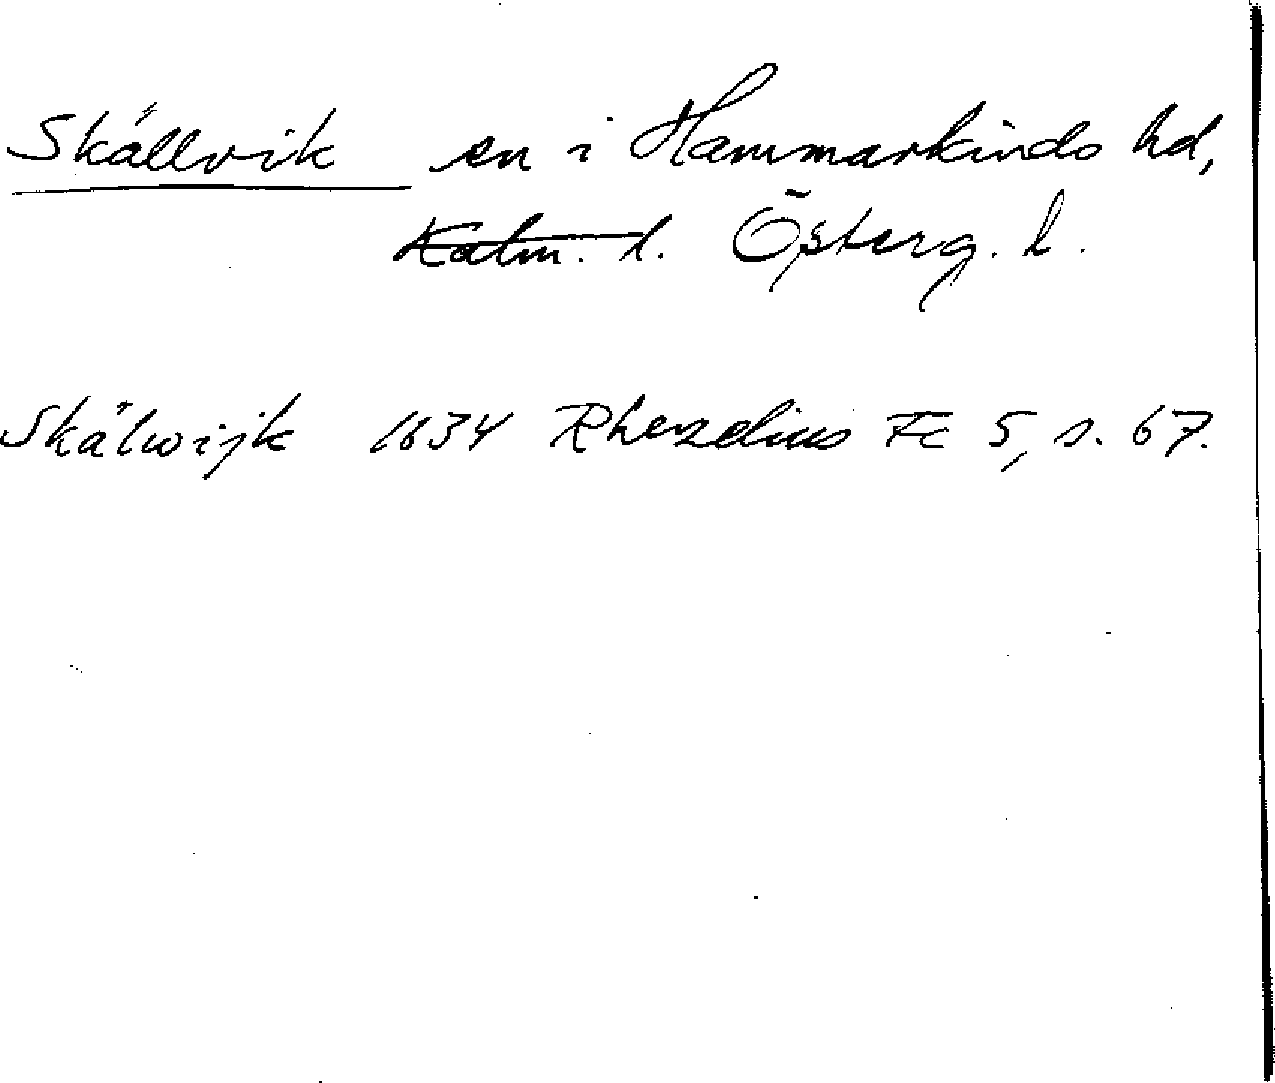 Skällvik sn i Hammarkinds hd,
Kalm. l. Österg. l.
Skälwijk 1634 Rhezelius Fc 5, s. 67.